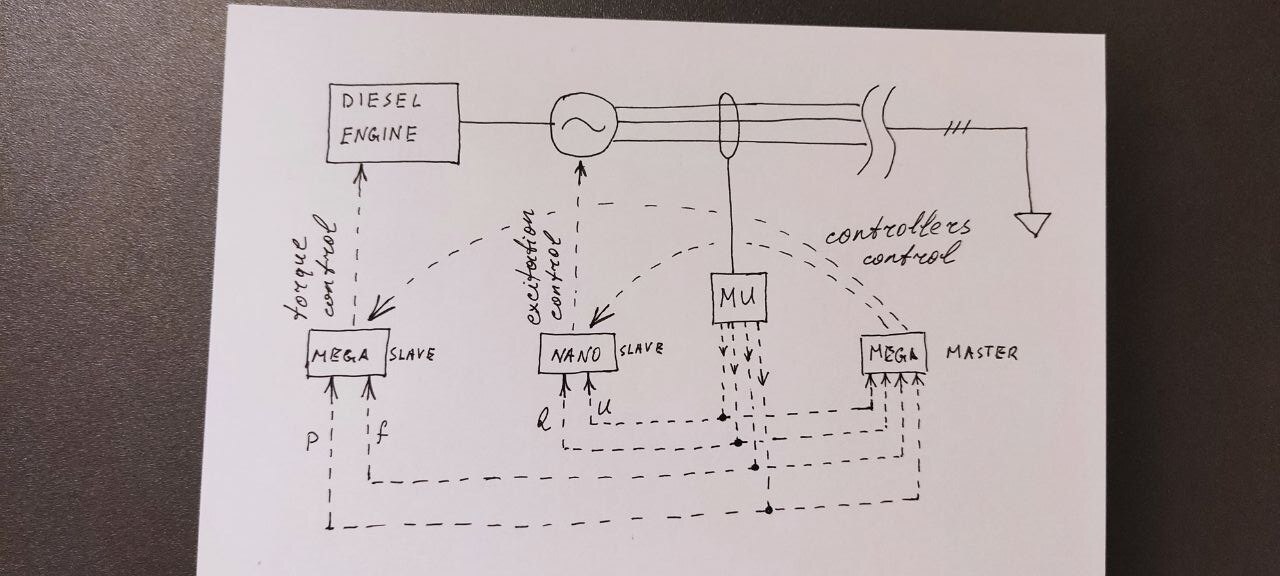 DIESEL
ENGINE
torque
control
excitation
control
controllers
control
MU
MEGA SLAVE
NANO SLAVE
MEGA MASTER
P
f
Q
U